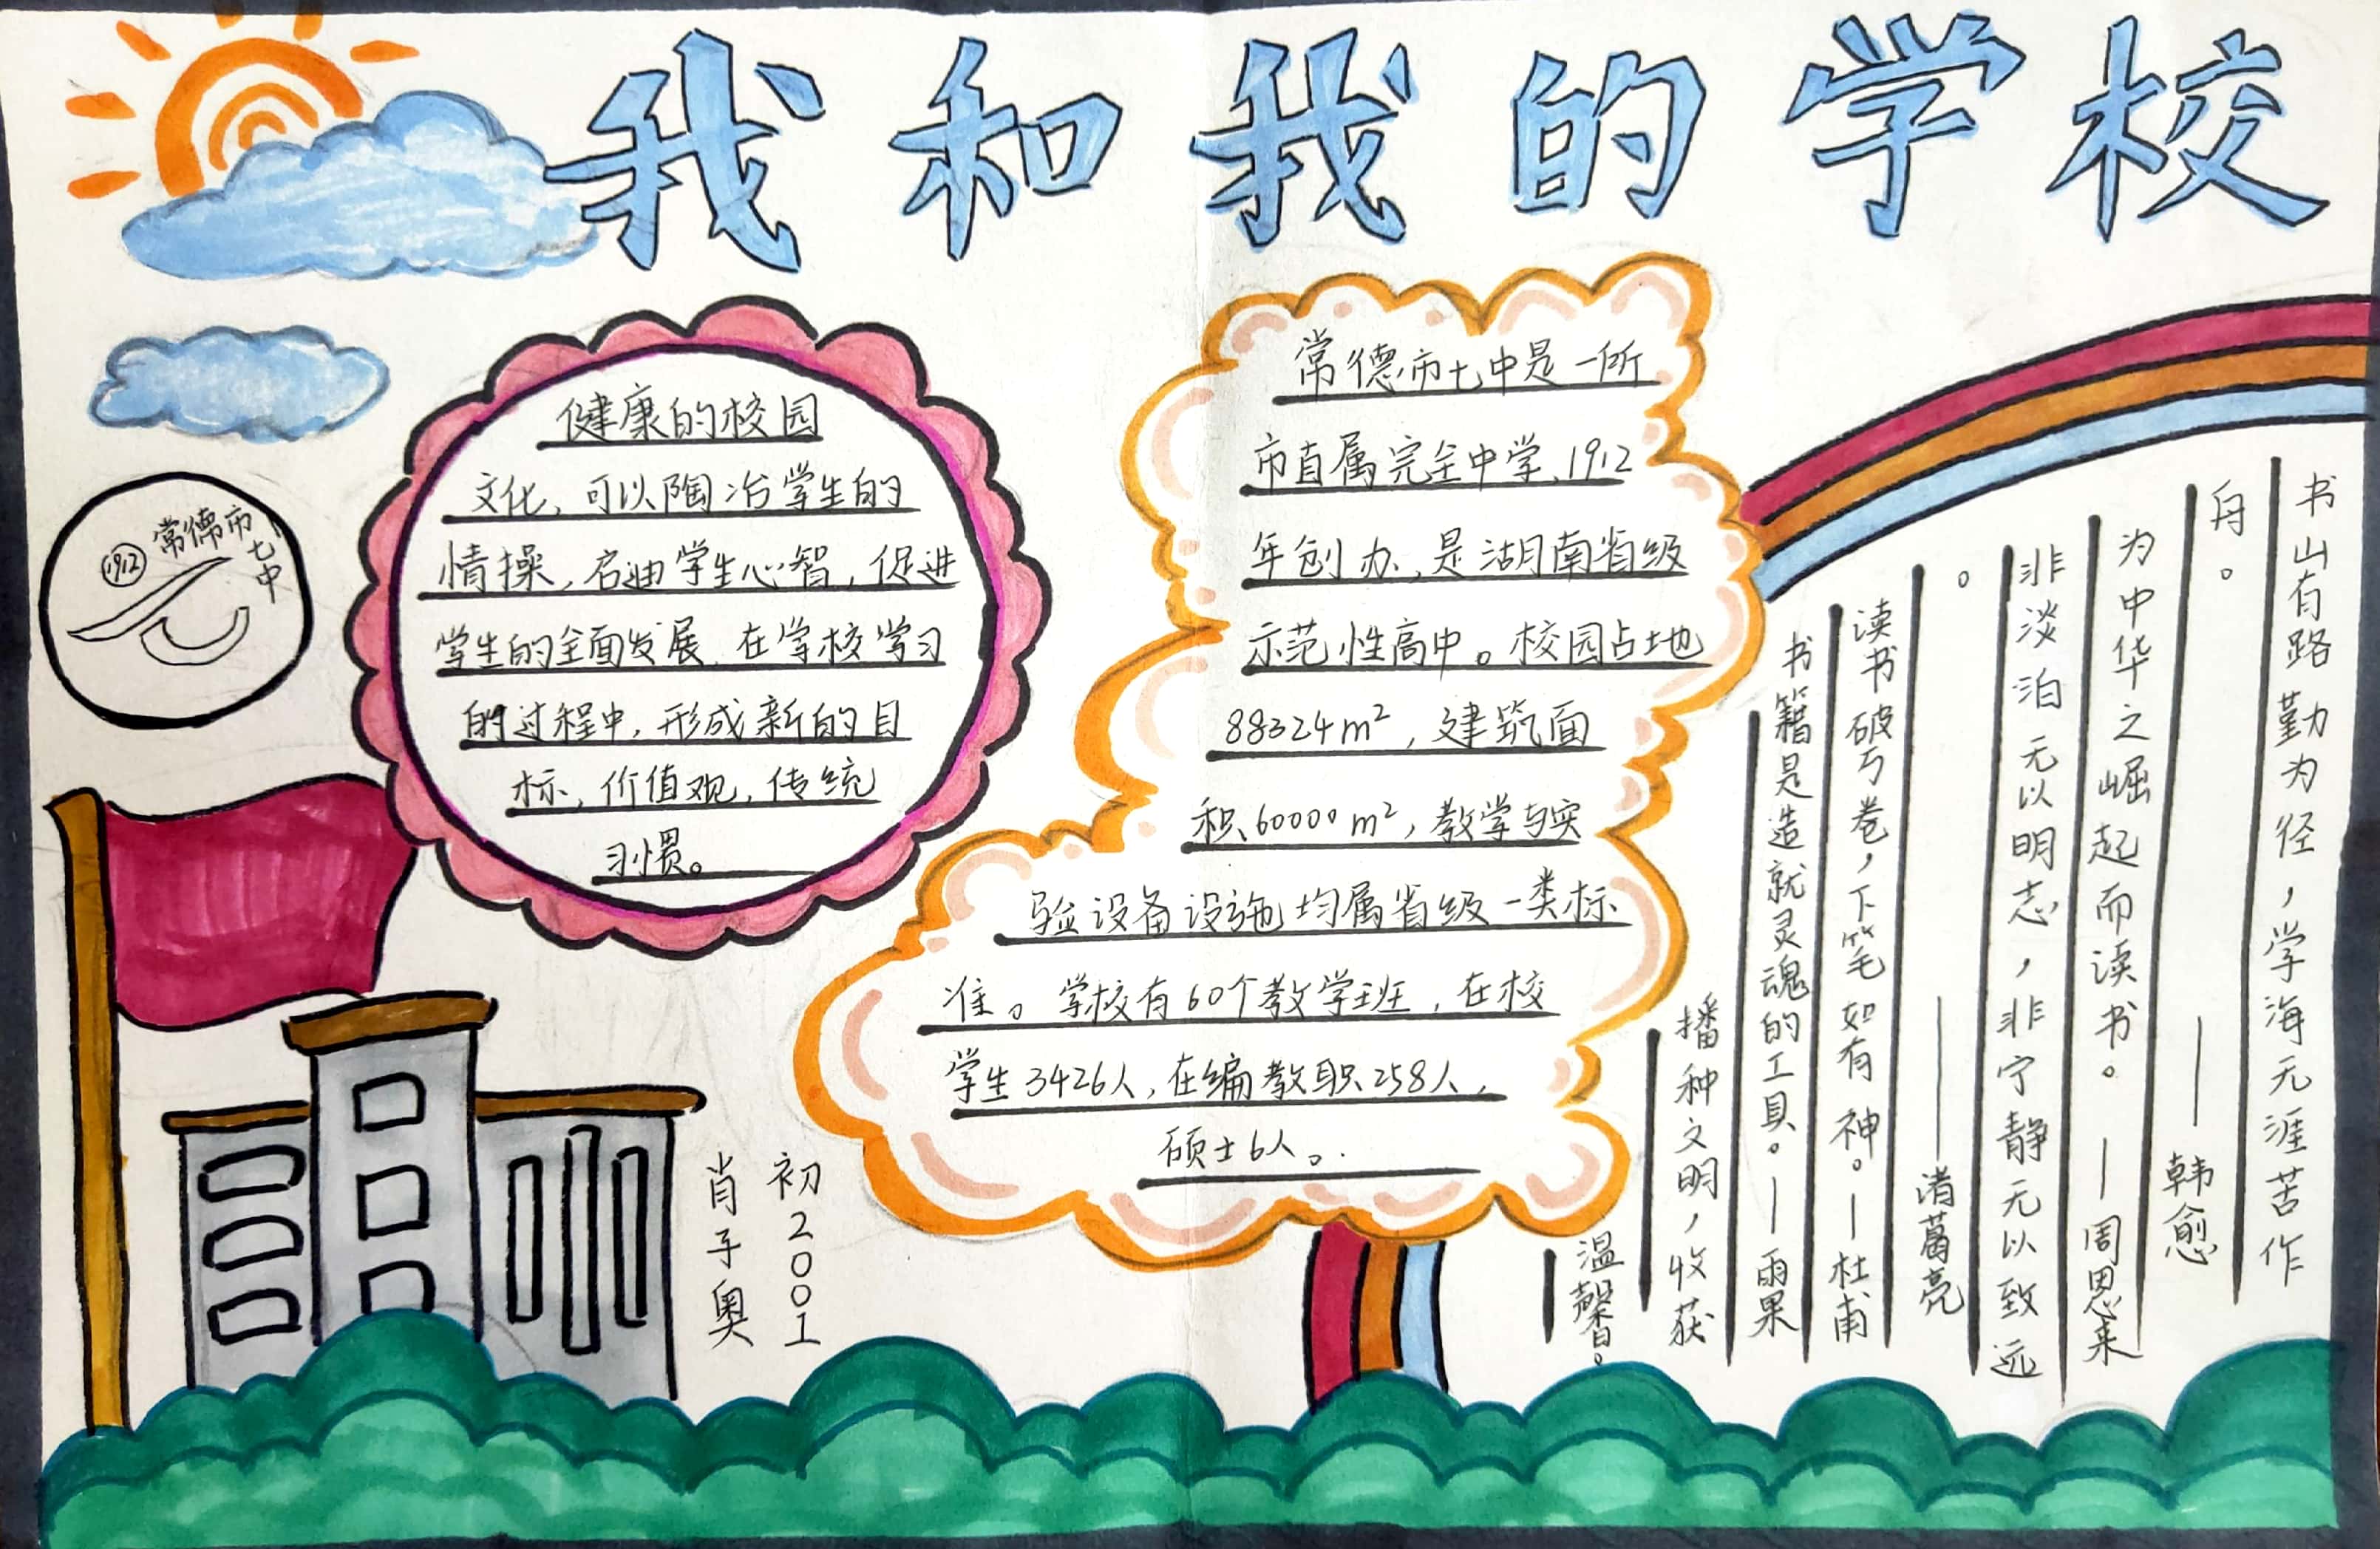 我和我的学校
1912
常德市七中
健康的校园
文化，可以陶冶学生的
情操，启迪学生心智，促进
学生的全面发展.在学校学习
的过程中，形成新的目
标，价值观，传统
习惯。
常德市七中是一所
市直属完全中学、1912
年创办，是湖南省级
示范性高中。校园占地
88324m²，建筑面
积60000m²，教学与实
验设备设施均属省级一类标
准。学校有60个教学班，在校
学生3426人，在编教职258人，
硕士6人。
书山有路勤为径，学海无涯苦作
舟。——韩愈
为中华之崛起而读书。—周恩来
非淡泊无以明志，非宁静无以致远
。——诸葛亮
读书破万卷，下笔如有神。—杜甫
书籍是造就灵魂的工具。—雨果
播种文明，收获
温馨。
初2001
肖子奥